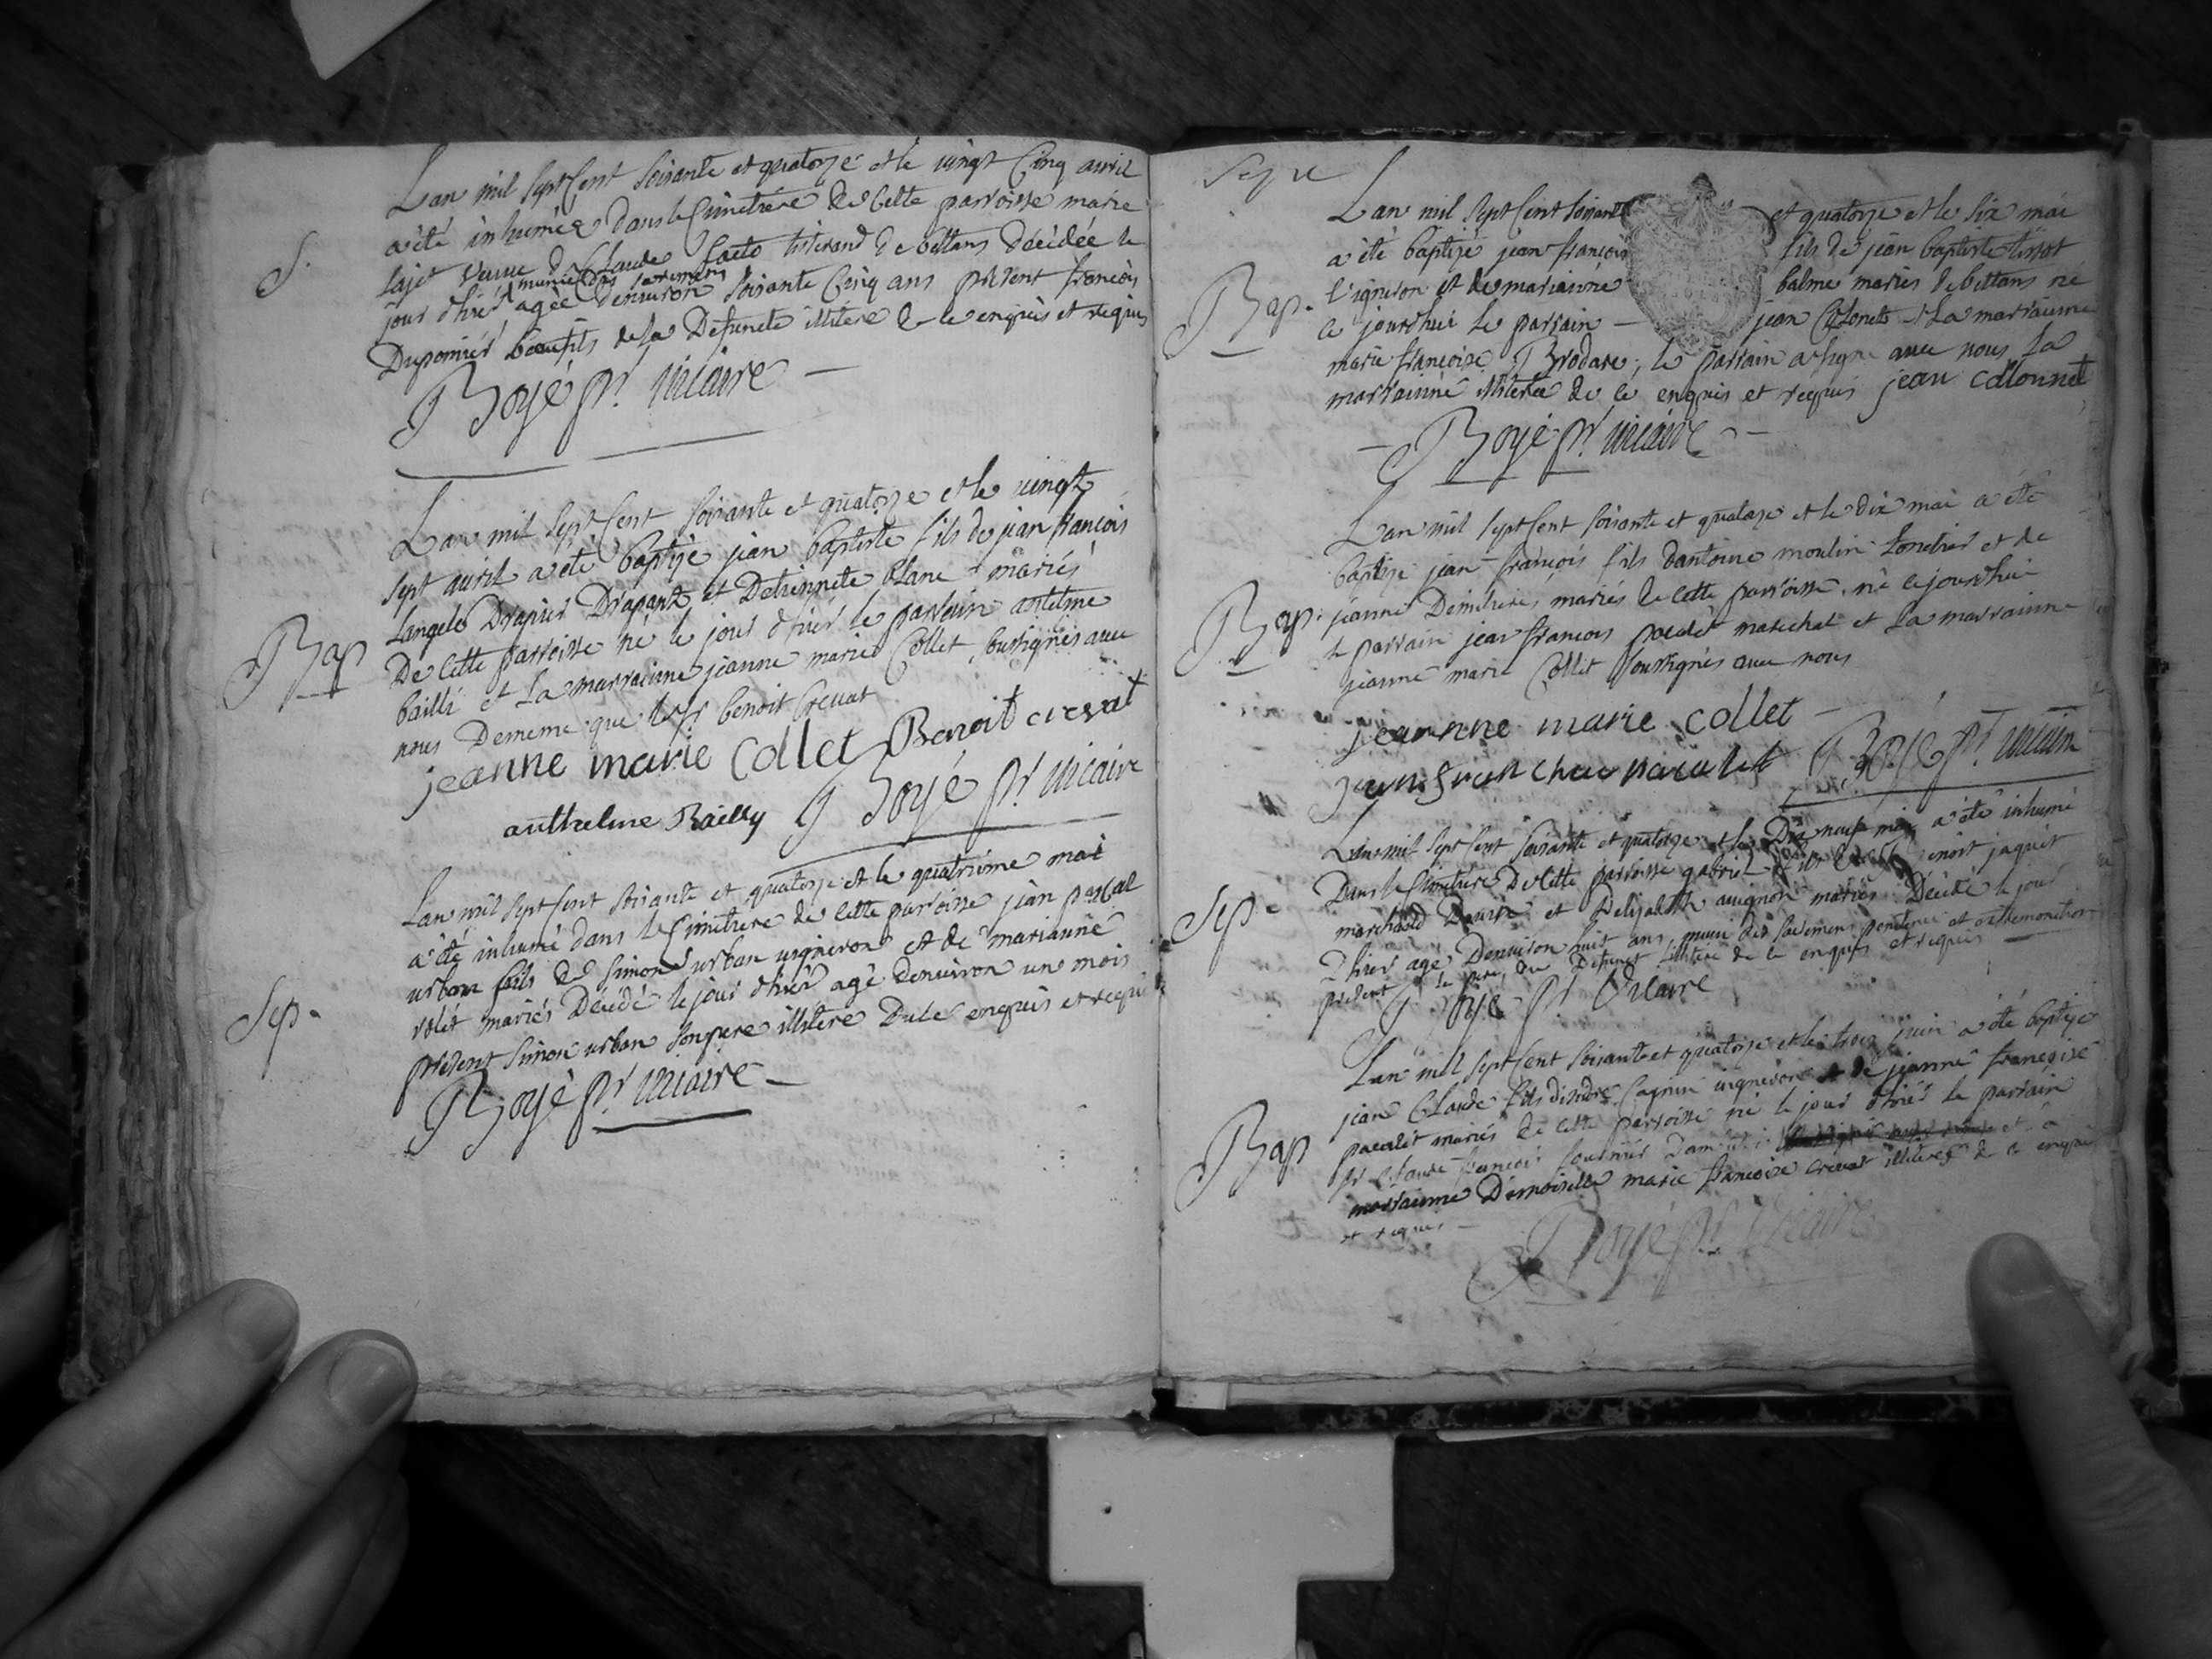 S.
Lan mil sept Cent soixante et quatorze et le vingt Cinq avril
a été inhumée dans le Cimetiere de Cette parroisse marie
lajet veuve de Claude tisserand de bettans décédée le
jour d'hier munie des sacremens agée denviron soixante Cinq ans présent françois
Duponier beaufils de la Defuncte illitéré de ce enquis et requis
Boyé ptr. vicaire
Bap
Lan mil sept Cent soixante et quatorze et le vingt
sept avril a été baptizé jean baptiste fils de jean françois
Langelo Drapier Drapant et Detiennete blanc mariés
De Cette parroisse né le jour d'hier le parrain antelme
bailli et la marrainne jeanne marie Collet soussignés avec
nous Dememe que le Sr benoit Crevat
jeanne marie Collet Benoit crevat
anthelme Bailly Boyé ptr vicaire
Sep.
Lan mil sept Cent soixante et quatorze et le quatrieme mai
a été inhumé dans le Cimetiere de Cette parroisse jean pascal
urban fils de simon urban vigneron et de marianne
volet mariés Décédé le jour d'hier agé denviron un mois
présent simon urban son pere illitéré De ce enquis et requis
Boyé ptr vicaire
Sep
Bap.
Lan mil sept Cent soixante et quatorze et le six mai
a été baptizé jean françois fils de jean baptiste tissot
vigneron et de marianne balme mariés de bettans né
ce jourdhui le parrain jean Colonet et La marrainne
marie françoise Brodare, le parrain a signé avec nous La
marrainne illiterée de ce enquis et requis jean collonnet
Boyé ptr. vicaire
Bap.
Lan mil sept Cent soixante et quatorze et le dix mai a été
baptizé jean françois fils dantoine moulin tondeur et de
jeanne Demeure, mariés de Cette parroisse, né cejourdhui
le parrain jean françois pacalet marechal et La marrainne
jeanne marie Collet soussignés avec nous
jeanne marie collet
pacalet Boyé ptr vicaire
Sep.
Lan mil sept Cent soixante et quatorze et le Dix neuf mai a été inhumé
Dans le Cimetiere De Cette parroisse gabriel fils de benoit jaquet
marchand et Delizabeth avignon mariés Décédé le jour
D'hier agé Denviron huit ans, muni des sacremens penitence et extremonction
présent le pere du Defunct illitéré de ce enquis et requis
Boyé ptr Vicaire
Bap
Lan mil sept Cent soixante et quatorze et le trois juin a été baptizé
jean Claude fils disidore Cagnin vigneron et de jeanne françoise
pacalet mariés de Cette parroisse né le jour d'hier le parrain
Sr Claude françois fournier et la
marrainne Demoiselle marie françoise crevat illiterés de ce enquis
et requis
Boyé ptr. Vicaire